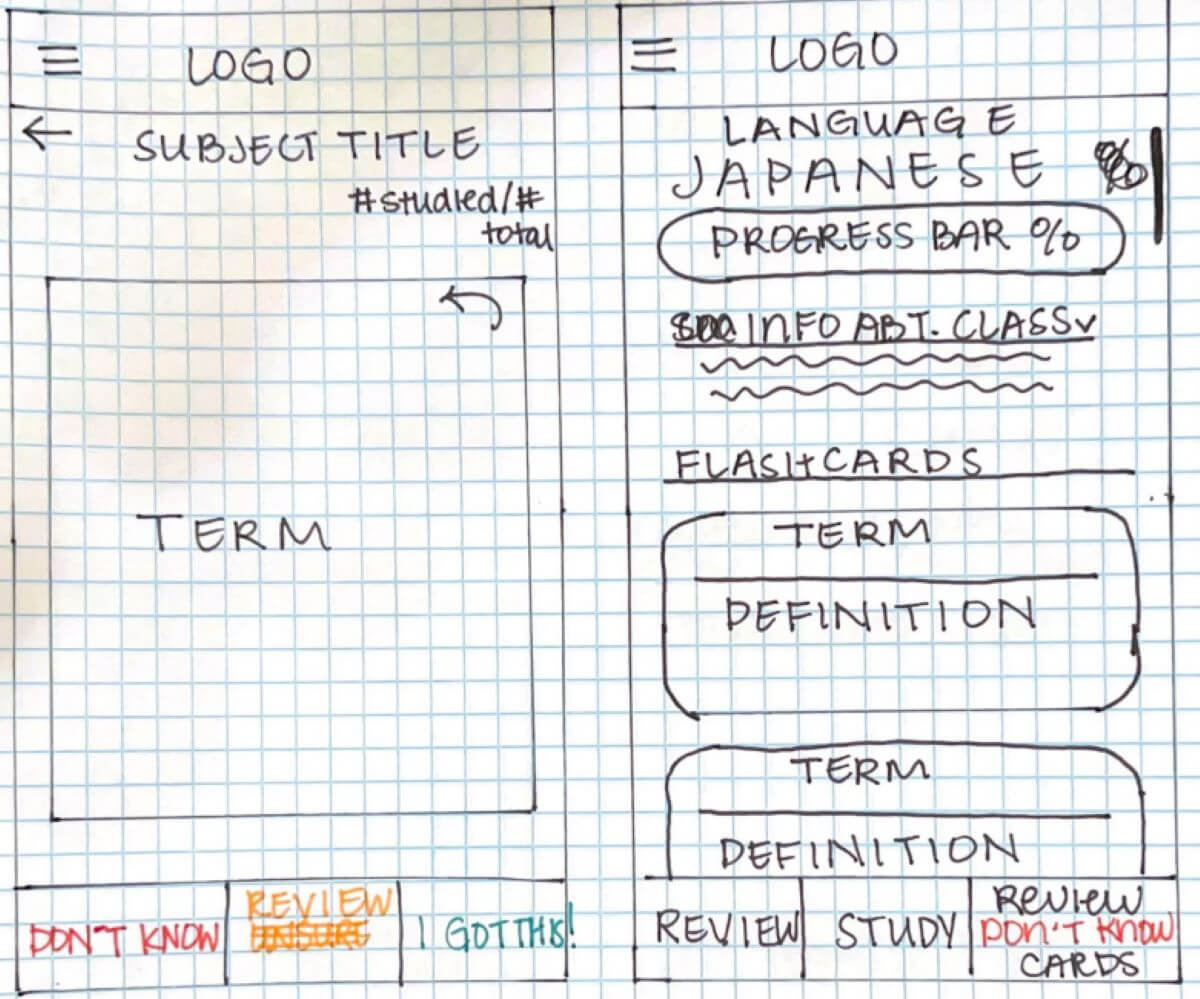 LOGO
SUBJECT TITLE
#studied/#
total
TERM
DON'T KNOW
REVIEW
UNSURE
I GOT THIS!
LOGO
LANGUAGE
JAPANESE
PROGRESS BAR %
INFO ABT. CLASS
FLASHCARDS
TERM
DEFINITION
TERM
DEFINITION
REVIEW
STUDY
REVIEW
DON'T KNOW
CARDS